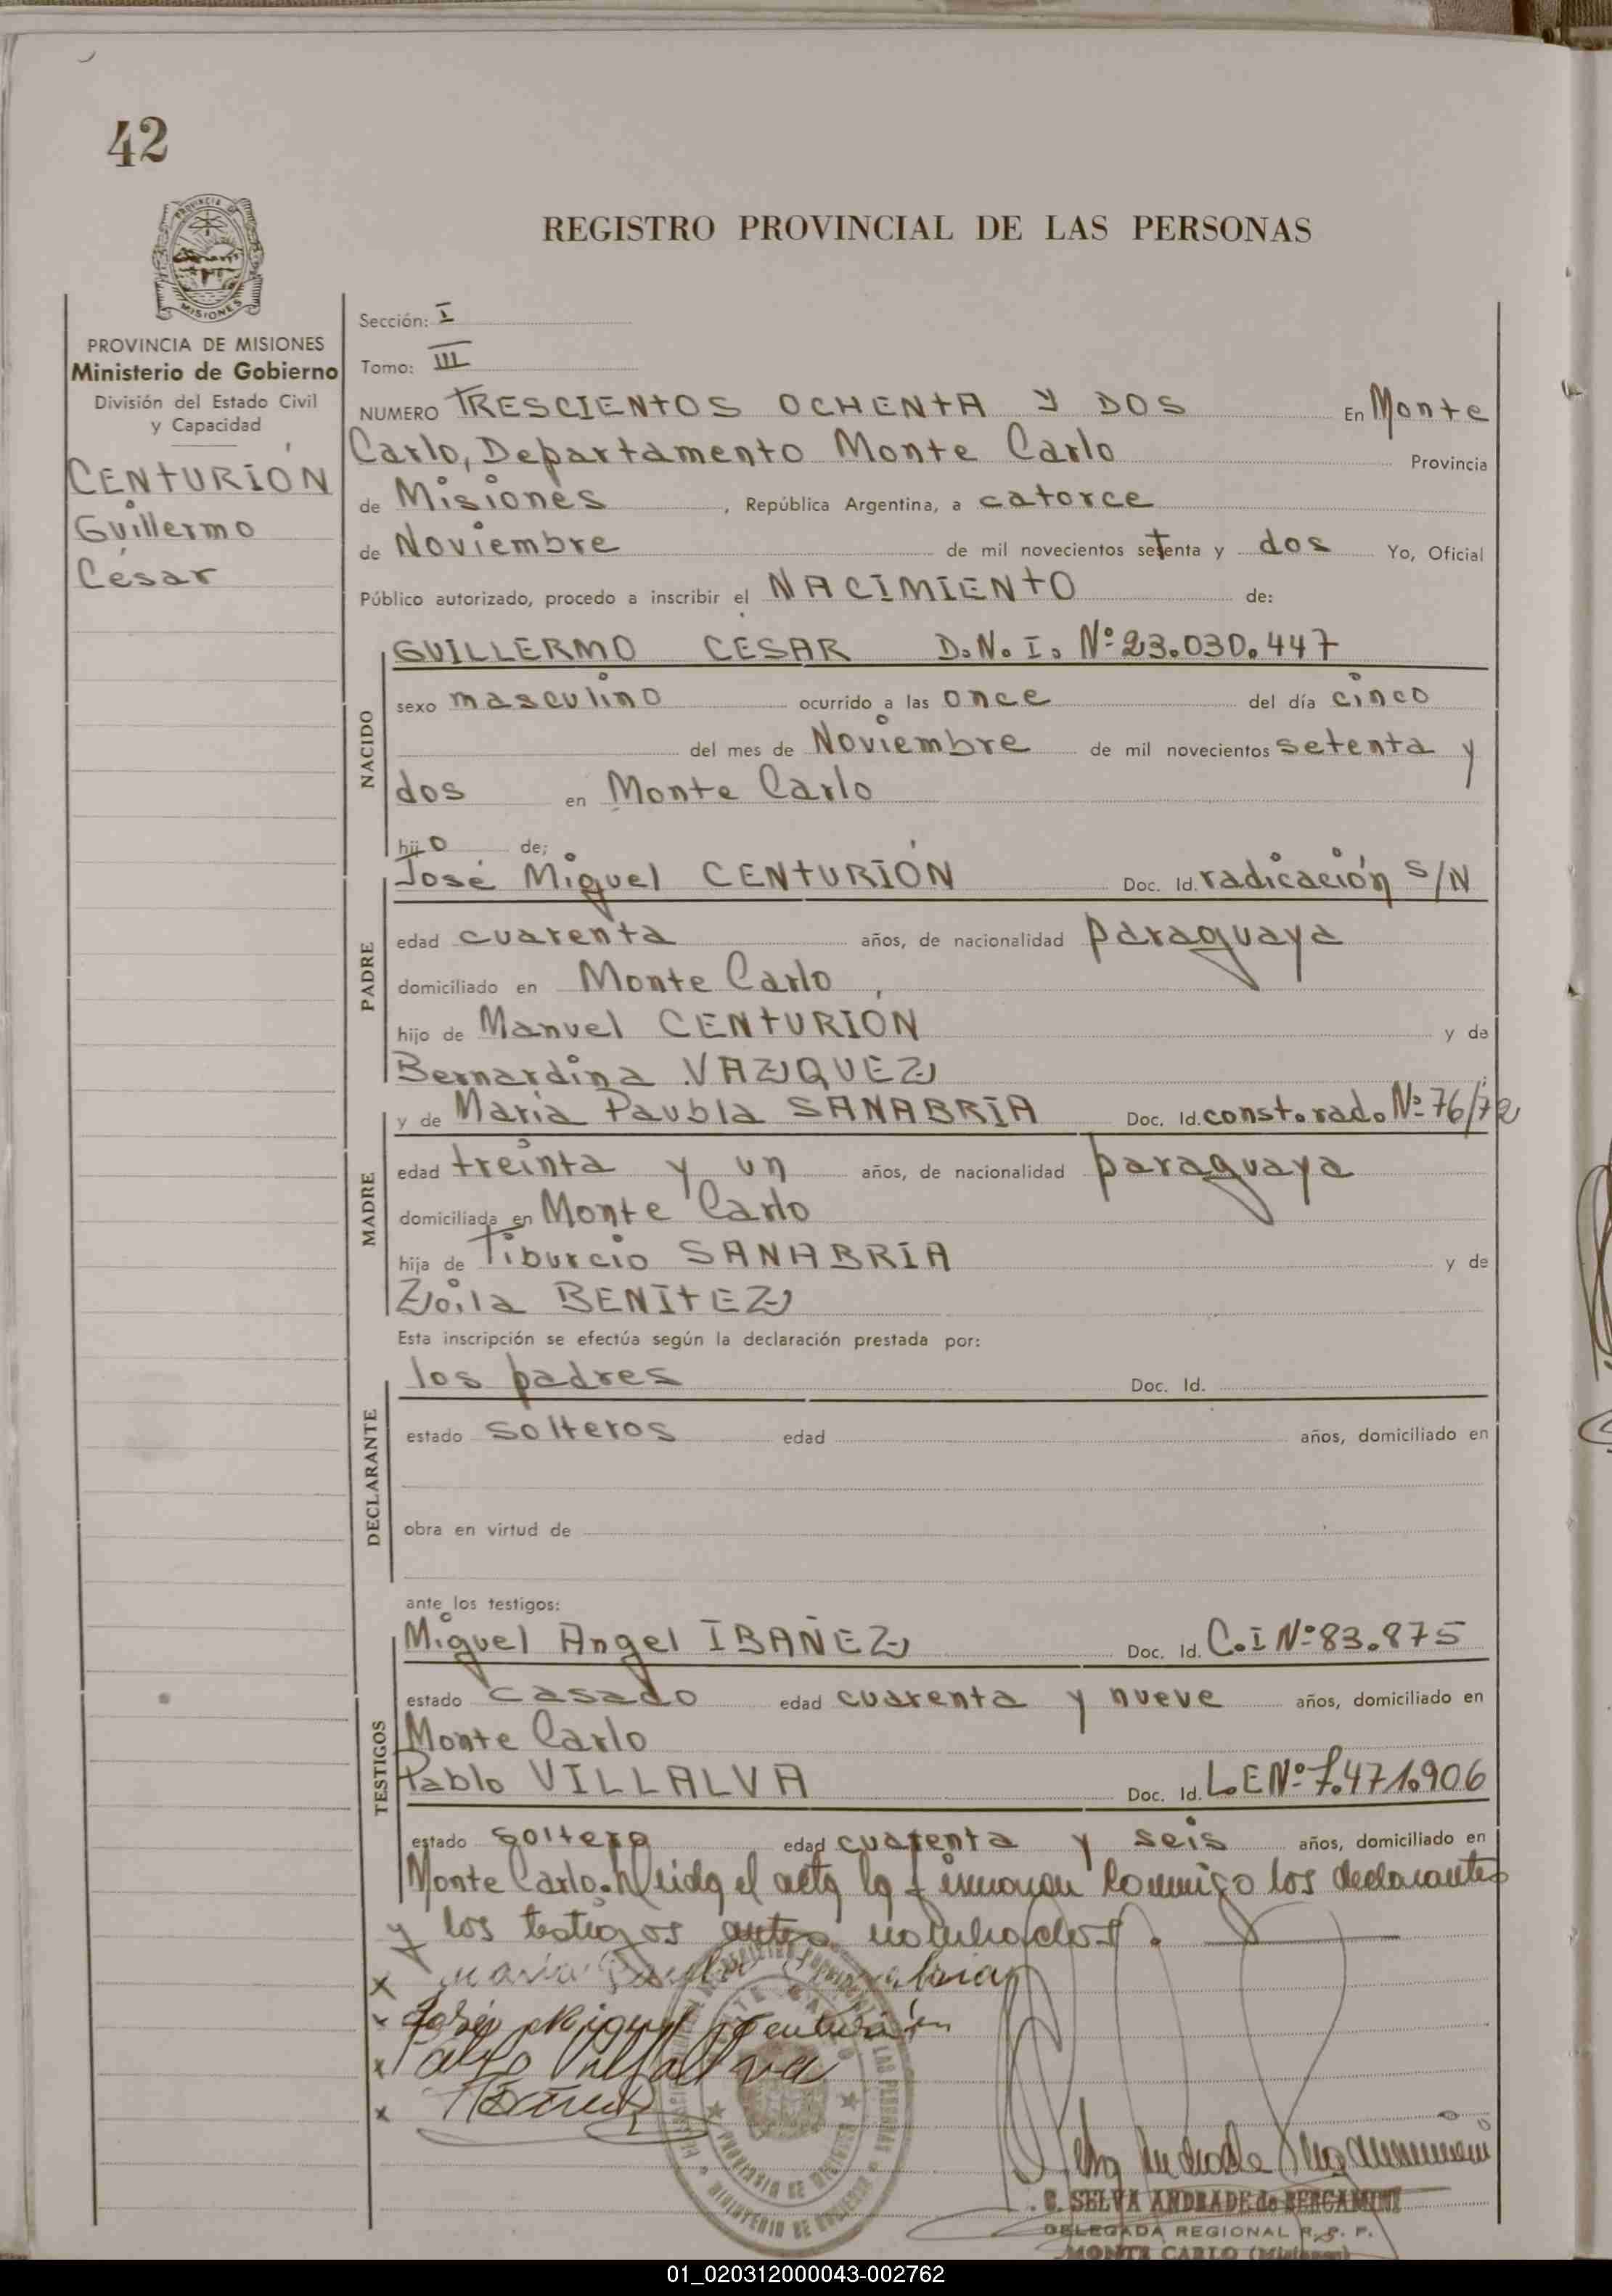 42
PROVINCIA DE
MISIONES
REGISTRO PROVINCIAL DE LAS PERSONAS
PROVINCIA DE MISIONES
Ministerio de Gobierno
División del Estado Civil
y Capacidad
CENTURIÓN
Guillermo
César
Sección: I
Tomo: III
NUMERO TRESCIENTOS OCHENTA Y DOS En Monte
Carlo, Departamento Monte Carlo Provincia
de Misiones, República Argentina, a catorce
de Noviembre de mil novecientos setenta y dos Yo, Oficial
Público autorizado, procedo a inscribir el NACIMIENTO de:
NACIDO
GUILLERMO CÉSAR D.N.I. Nº 23.030.447
sexo masculino ocurrido a las once del día cinco
del mes de Noviembre de mil novecientos setenta y
dos en Monte Carlo
hijo de;
PADRE
José Miguel CENTURIÓN Doc. Id. radicación S/N
edad cuarenta años, de nacionalidad paraguaya
domiciliado en Monte Carlo
hijo de Manuel CENTURIÓN y de
Bernardina VAZQUEZ
MADRE
y de María Paubla SANABRIA Doc. Id. const.rad. Nº 76/72
edad treinta y un años, de nacionalidad paraguaya
domiciliada en Monte Carlo
hija de Tiburcio SANABRIA y de
Zoila BENITEZ
Esta inscripción se efectúa según la declaración prestada por:
DECLARANTE
los padres Doc. Id.
estado solteros edad años, domiciliado en
obra en virtud de
ante los testigos:
TESTIGOS
Miguel Angel IBAÑEZ Doc. Id. C.I Nº 83.875
estado casado edad cuarenta y nueve años, domiciliado en
Monte Carlo
Pablo VILLALVA Doc. Id. L.E Nº 7.471.906
estado soltero edad cuarenta y seis años, domiciliado en
Monte Carlo. leida el acta la firmaron conmigo los declarantes
y los testigos antes nombrados.
x María
x José Miguel Centurión
x Pablo Villalva
x
PROVINCIA DE MISIONES
MINISTERIO DE GOBIERNO
C. SELVA ANDRADE de BERGAMINI
DELEGADA REGIONAL R. P. P.
MONTE CARLO (Misiones)
01_020312000043-002762